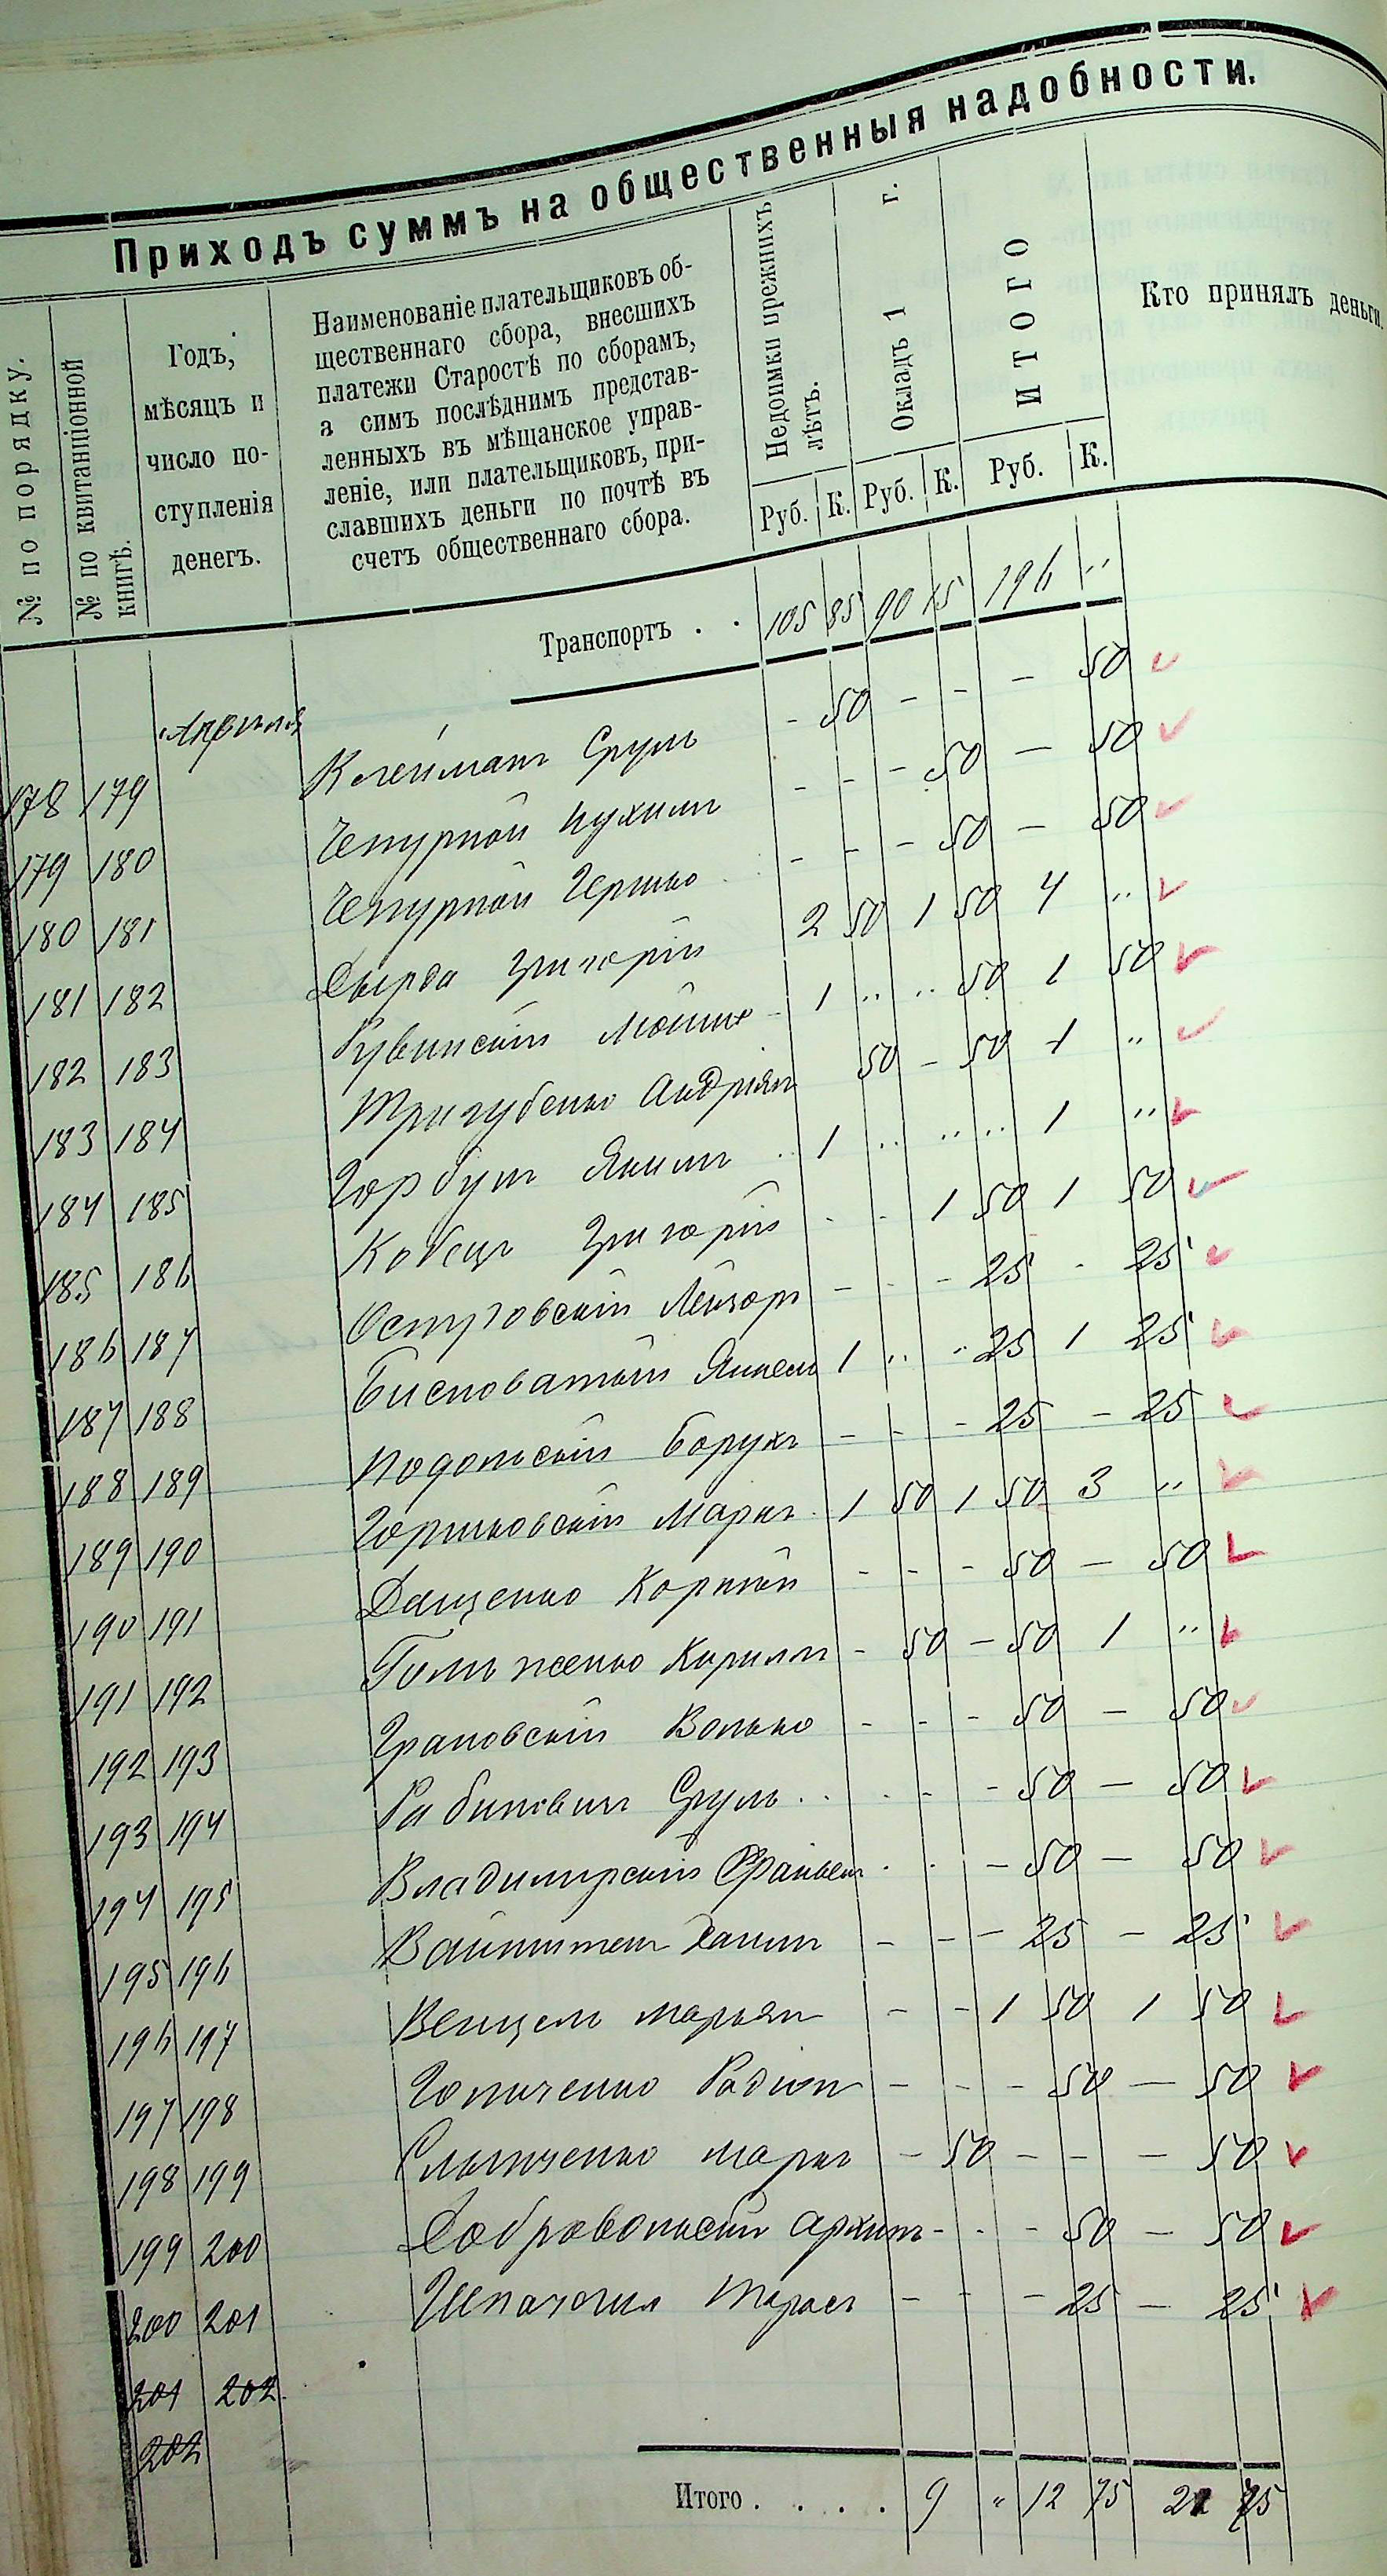 Приходъ суммъ на общественныя надобности.
№ по порядку.
№ по квитанціонной книгѣ.
Годъ,
мѣсяцъ и
число по-
ступленія
денегъ.
Наименованіе плательщиковъ об-
щественнаго сбора, внесшихъ
платежи Старостѣ по сборамъ,
а симъ послѣднимъ представ-
ленныхъ въ мѣщанское управ-
леніе, или плательщиковъ, при-
славшихъ деньги по почтѣ въ
счетъ общественнаго сбора.
Недоимки прежнихъ
лѣтъ.
Окладъ 1 г.
ИТОГО
Кто принялъ деньги.
Руб. К. Руб. К. Руб. К.
Транспортъ . . 105 85 90 15 196 "
Апрѣля
178 179 Клейманъ Сруль - 50 - - - 50
179 180 Чепурной Нухимъ - - - 50 - 50
180 181 Чепурной Гершко - - - 50 - 50
181 182 Дырда Григорій 2 50 1 50 4 "
182 183 Рувинскій Мойше 1 " " 50 1 50
183 184 Тригубенко Андріян 50 - 50 1 "
184 185 Горбуль Якимъ 1 " " " 1 "
185 186 Кобецъ Григорій - - 1 50 1 50
186 187 Островскій Лейзоръ - - - 25 - 25
187 188 Бисноватый Янкель 1 " " 25 1 25
188 189 Подольскій Борухъ - - - 25 - 25
189 190 Горшковскій Маркъ 1 50 1 50 3 "
190 191 Даценко Корній - - - 50 - 50
191 192 Кирилъ - 50 - 50 1 "
192 193 Грановскій Волько - - - 50 - 50
193 194 Рабиновичъ Сруль . . - - - 50 - 50
194 195 Владимирскій - - - 50 - 50
195 196 Вайнштейн Хаимъ - - - 25 - 25
196 197 Венцель Марьян - - 1 50 1 50
197 198 Радіон - - - 50 - 50
198 199 Маркъ - 50 - - - 50
199 200 Добровольскій Архипъ - - - 50 - 50
200 201 Тарасъ - - - 25 - 25
201 202
202
Итого . . . . 9 " 12 75 21 75